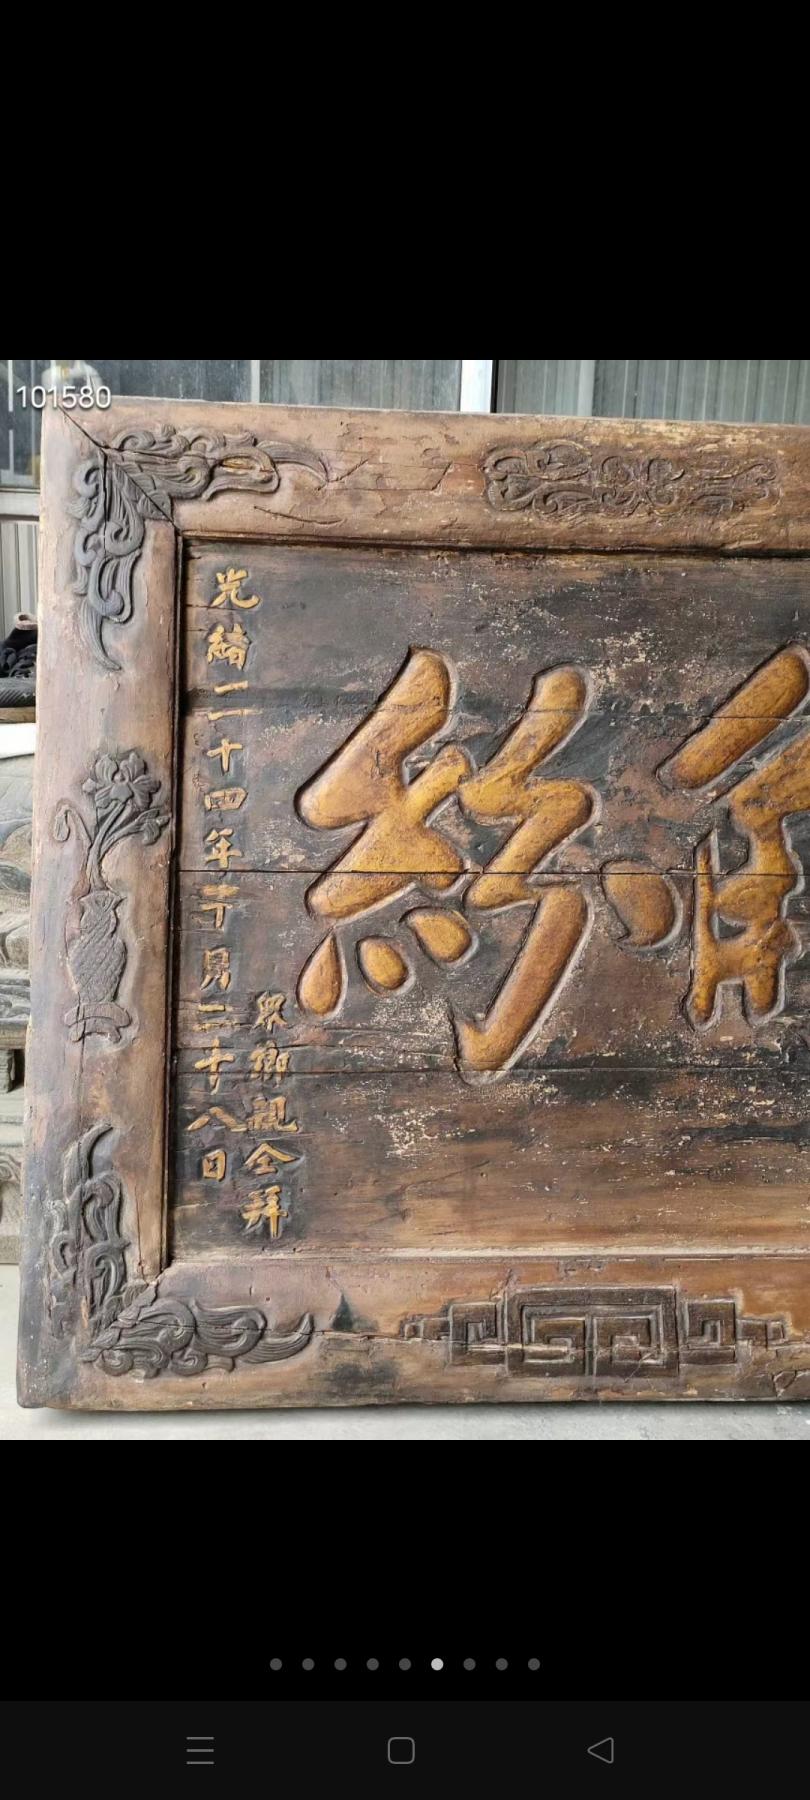 101580
絲
眾鄉親仝拜
光緒二十四年月二十八日